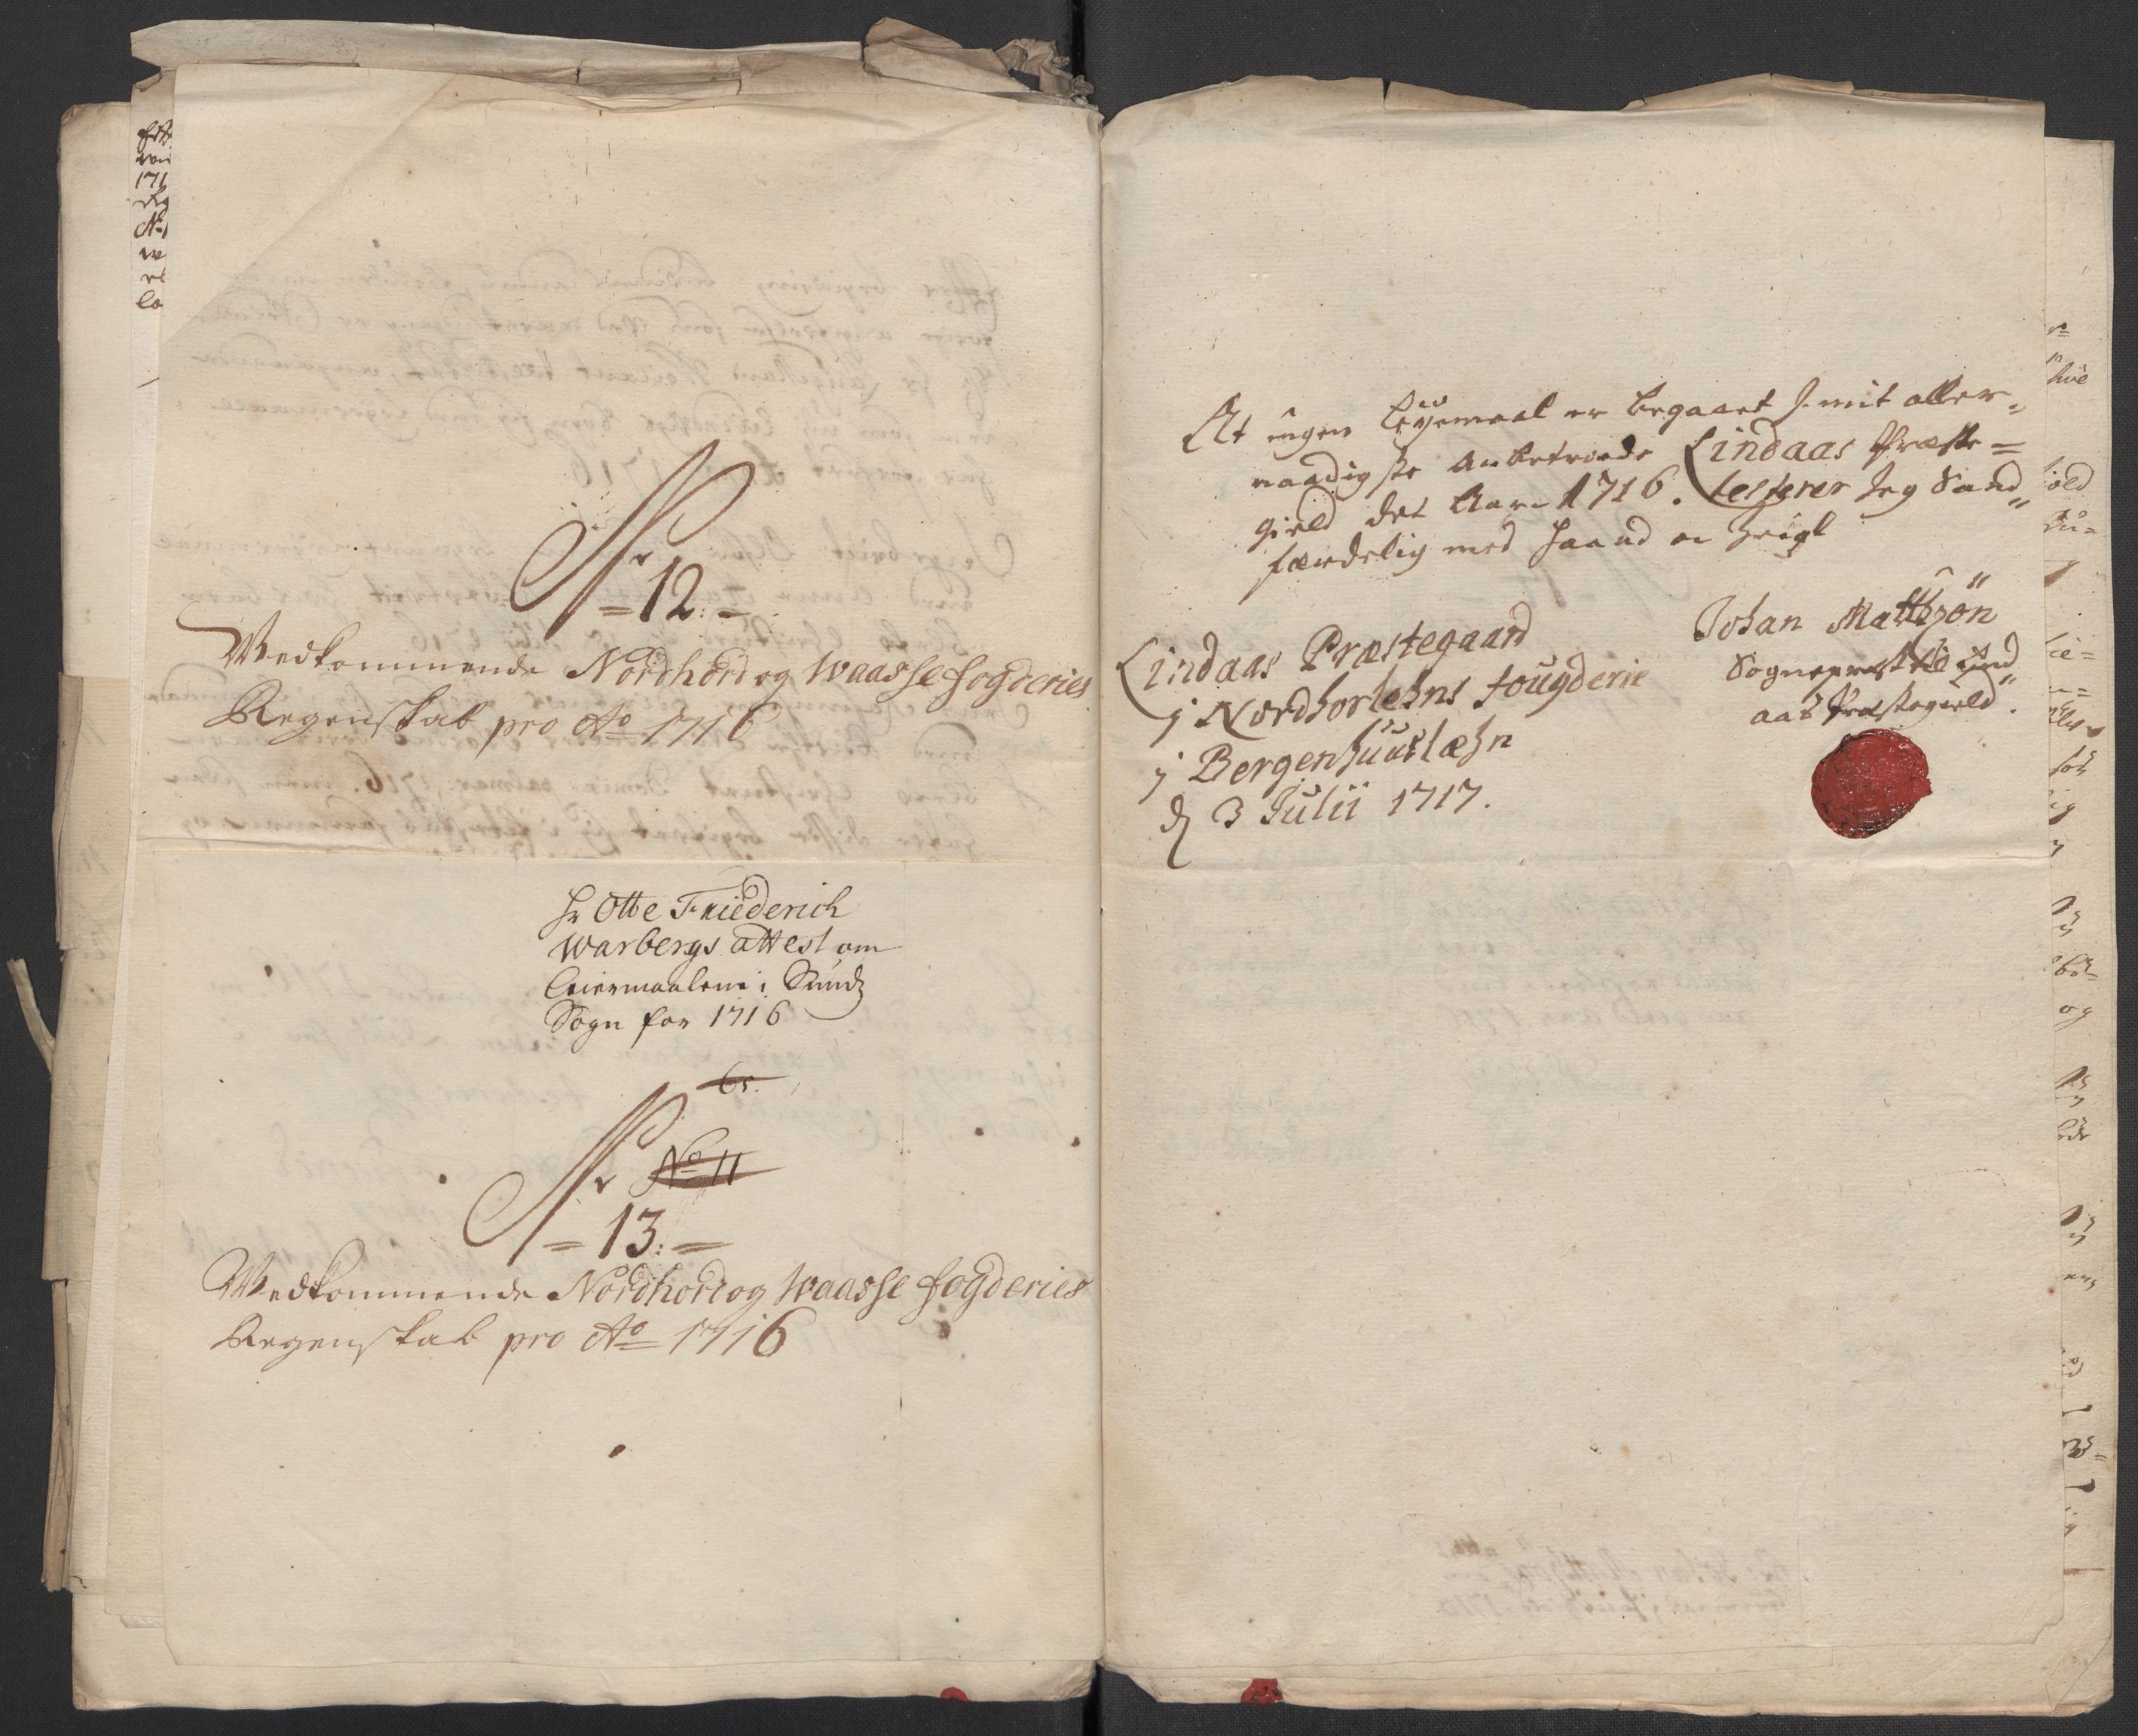 Nr
=12:=
Wedkommende Nordhord og Waasse fogderies
Regenskab pro Ao 1716
Hr Otte Friederich
Warbergs attest om
Leiermaalene i Sund
Sogn for 1716
Nr No 11
=13:=
Wedkommende Nordhord og Waasse fogderies
Regenskab pro Ao 1716
At ingen Leyemaal er begaaet i mit aller=
naadigste anbetroede Lindaas Præste=
gield det Aar 1716. testerer Jeg Sand=
færdelig med Haand oc Zeigl
Lindaas Præstegaard
j Nordhorlehns fougderie
j Bergenhuuslæhn
d 3 Julii 1717.
Johan Mattzøn
Sogneprest til Lind
aas Præstegield.